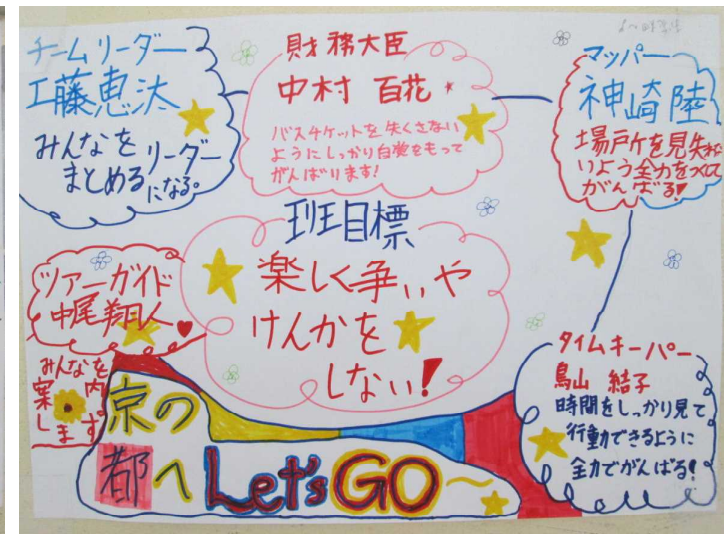 チームリーダー
工藤恵汰
みんなを
まとめるリーダー
になる。
財務大臣
中村 百花
バスチケットを失くさない
ようにしっかり自覚をもって
がんばります!
マッパー
神崎陸
場戸ケを見失わな
いよう全力をつくして
がんばる!
班目標
楽しく争いや
けんかを
しない!
ツアーガイド
中尾翔人
みんなを
案内
します。
タイムキーパー
鳥山 結子
時間をしっかり見て
行動できるように
全力でがんばる!
京の
都へ Let's GO〜